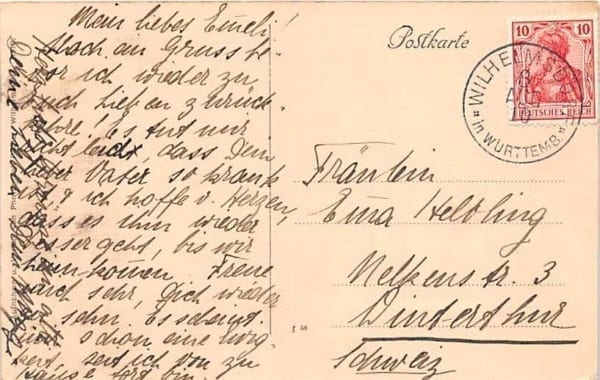 Mein liebes Emeli!
Noch ein Gruss be-
vor ich wieder zu
Euch Lieben zurück
kehre! Es tut mir
recht leid, dass Dein
lieber Vater so krank
ist & ich hoffe v. Herzen,
dass es ihm wieder
besser geht, bis wir
heimkommen. Freue
mich sehr, Dich wieder
zu sehn. Es scheint
mir schon eine Ewig-
keit, seit ich von zu
Hause fort bin.
Postkarte
10 10
DEUTSCHES REICH
WILHELMSDORF
AUG
10
in WÜRTTEMB.
Fräulein
Emma Helbling
Nelkenstr. 3
Winterthur
Schweiz